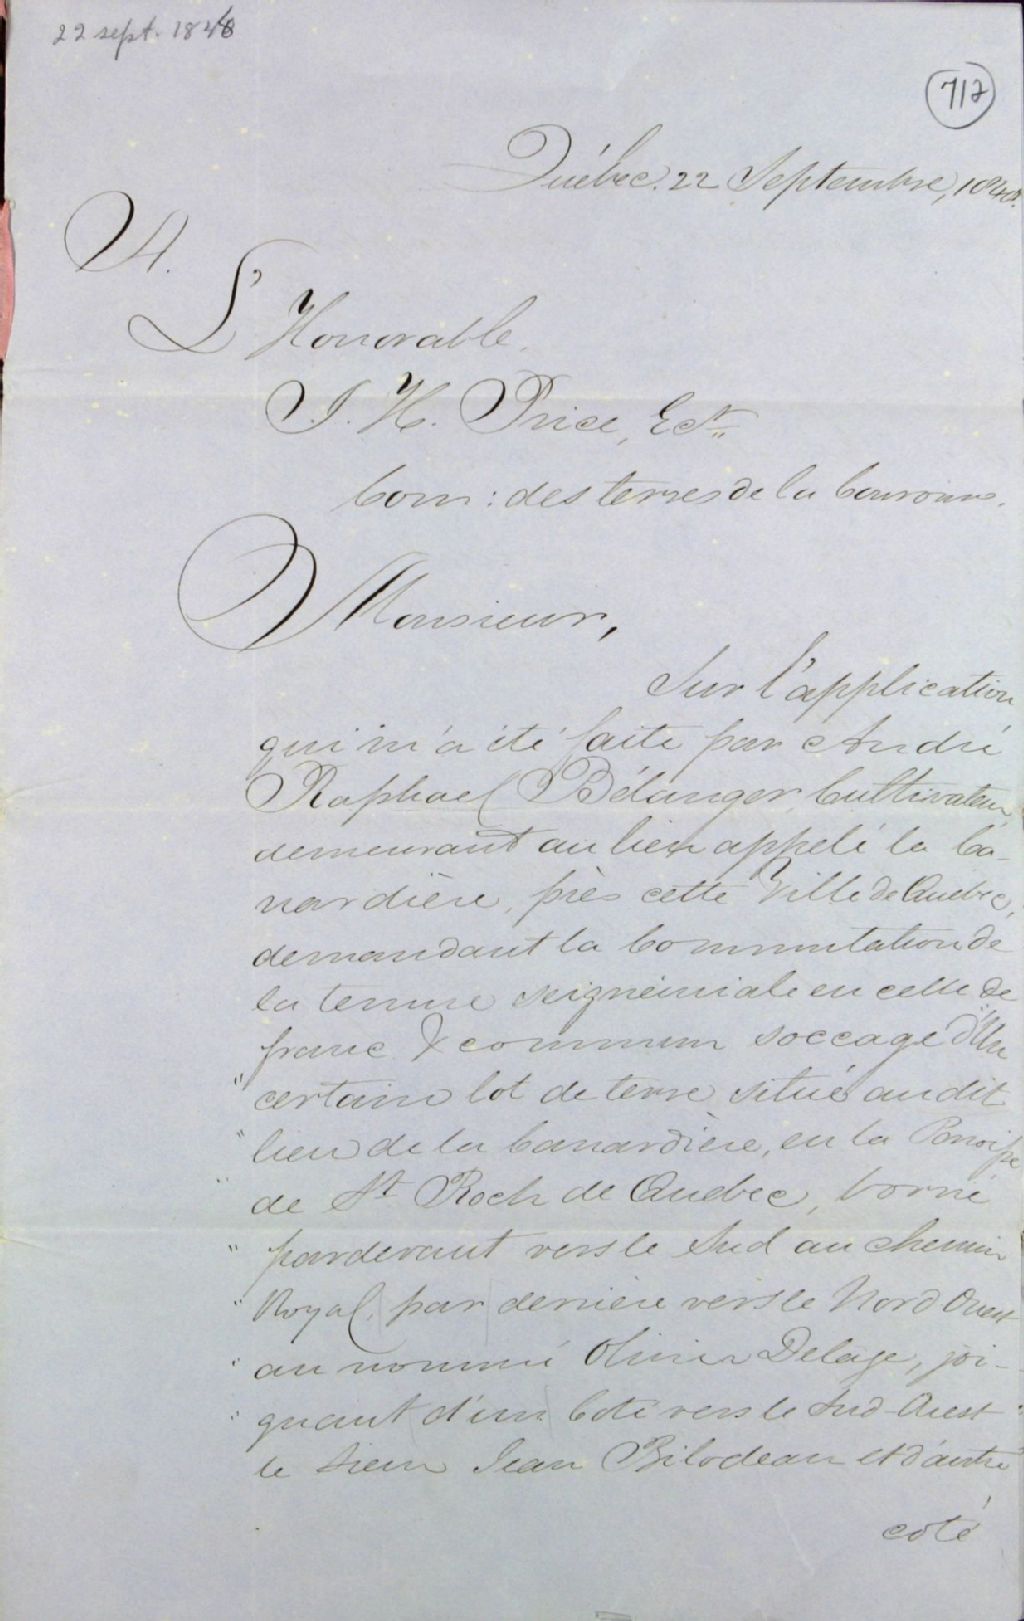 22 sept. 1848
712
Québec 22 Septembre, 1848.
A.
L'Honorable
J. H. Price, Ecr.
Com: des terres de la Couronne.
Monsieur,
Sur l'application
qui m'a été faite par André
Raphael Bélanger, Cultivateur,
demeurant au lieu appelé la Ca-
nardière, près cette Ville de Quebec,
demandant la Commutation de
la tenure seigneuriale en celle de
franc & commun soccage "d'Un
" certain lot de terre situé au dit
" lieu de la Canardière, en la Paroisse
" de St Roch de Quebec, borné
" pardevant vers le Sud au chemin
" Royal, par derrière vers le Nord Ouest
" au nommé Olivier Delage, joi-
" gnant d'un Coté vers le Sud-Ouest
le Sieur Jean Bilodeau et d'autre
coté